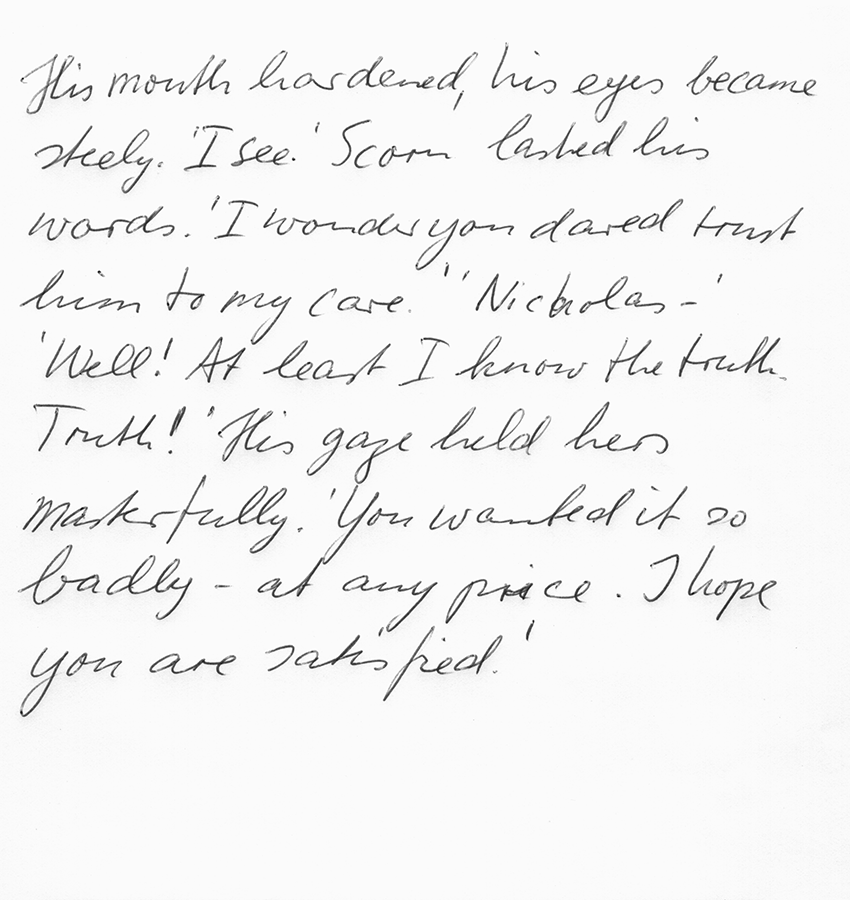 His mouth hardened, his eyes became
steely. 'I see.' Scorn lashed his
words. 'I wonder you dared trust
him to my care.' 'Nicholas -'
'Well! At least I know the truth.
Truth!' His gaze held hers
masterfully. 'You wanted it so
badly - at any price. I hope
you are satisfied.'